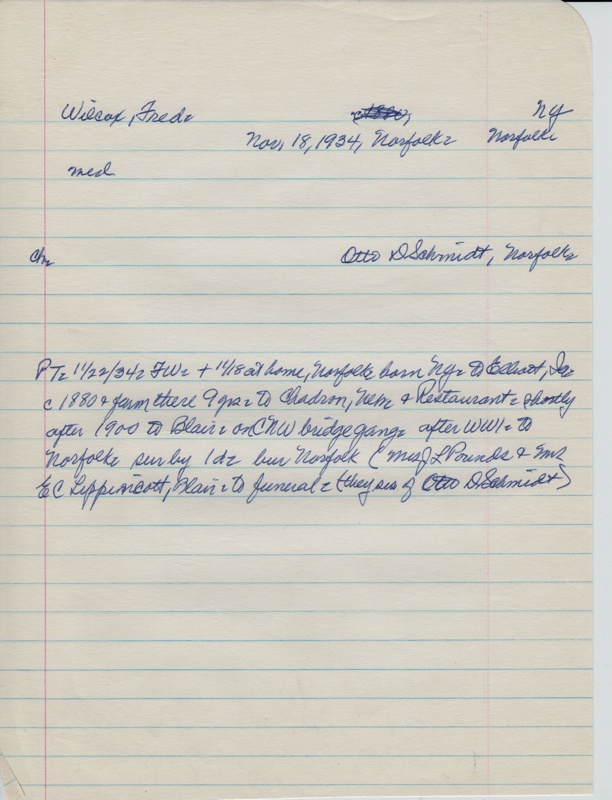 Wilcox, Fred= NY
Nov, 18, 1934, Norfolk= Norfolk=
med
ch= Otto D Schmidt, Norfolk=
PT= 11/22/34= FW= + 11/18 at home, Norfolk= born NY= to Elliott, Ia=
c 1880 & farm there 9 yrs= to Chadron, Neb= & Restaurant= shortly
after 1900 to Blair= on CNW bridge gang= after WWI= to
Norfolk= sur by 1d= bur Norfolk (Mrs J L Pounds & Mrs
E C Lippincott, Blair= to funeral= (they sis of Otto D Schmidt)